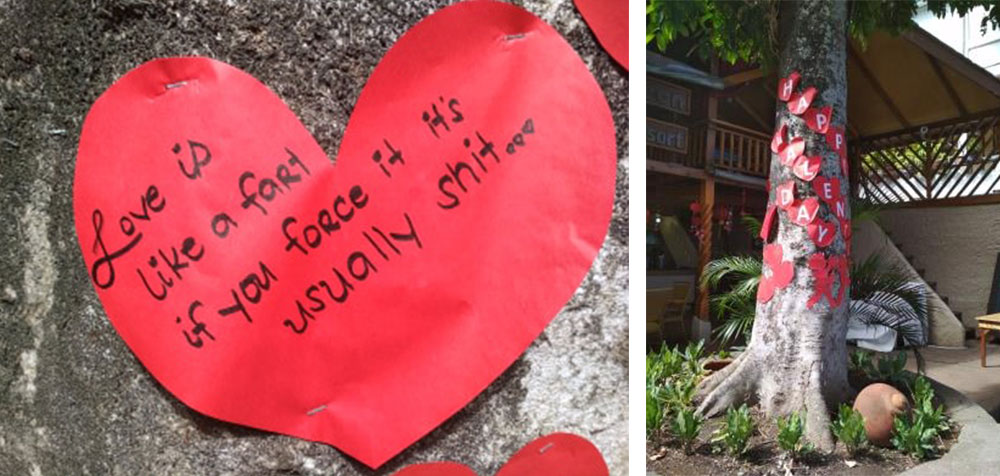 Love is
like a fart
if you force it it's
usually shit...
HAPPY
VALEN
DAY
sort